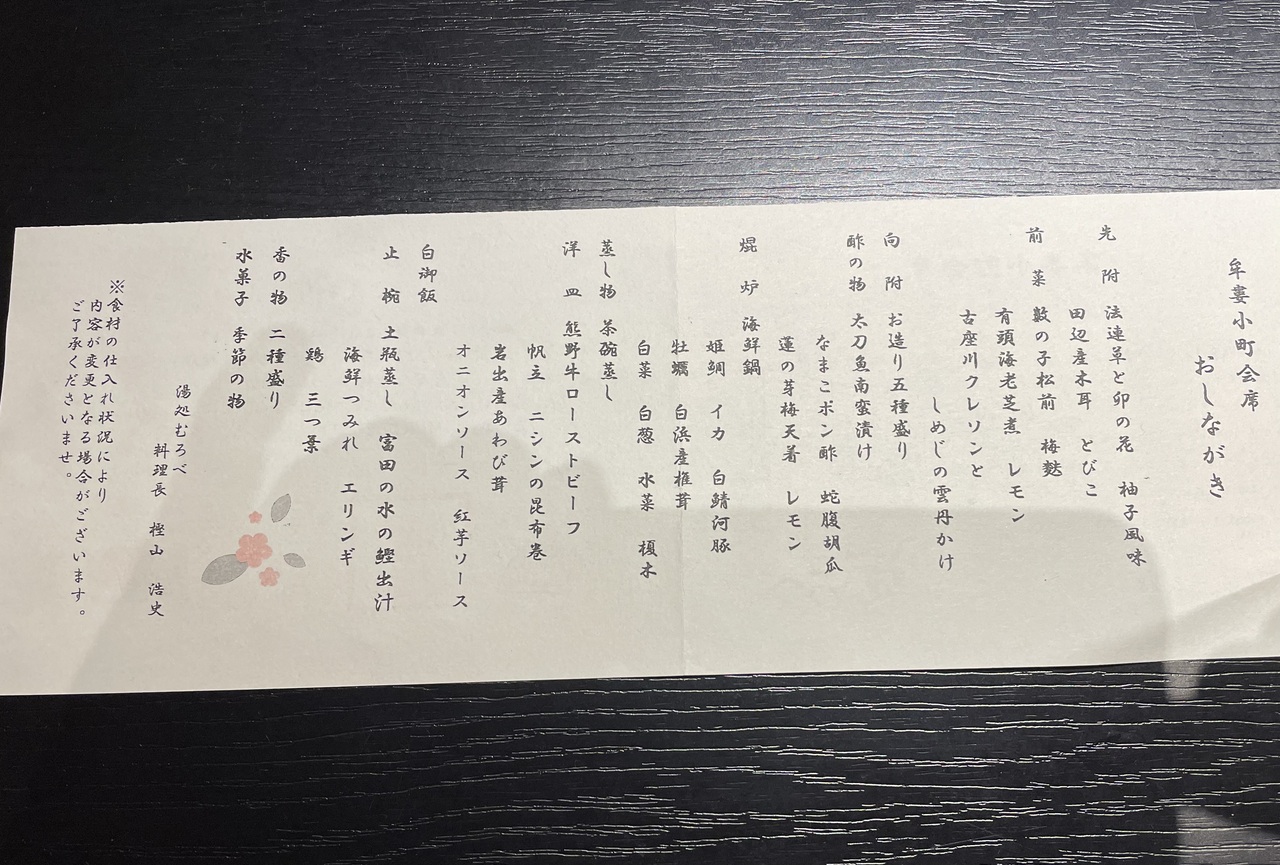 牟婁小町会席
おしながき
先　附　法連草と卯の花　柚子風味
田辺産木耳　とびこ
前　菜　数の子松前　梅麩
有頭海老芝煮　レモン
古座川クレソンと
しめじの雲丹かけ
向　附　お造り五種盛り
酢の物　太刀魚南蛮漬け
なまこポン酢　蛇腹胡瓜
蓮の芽梅天着　レモン
焜　炉　海鮮鍋
姫鯛　イカ　白鯖河豚
牡蠣　白浜産椎茸
白菜　白葱　水菜　榎木
蒸し物　茶碗蒸し
洋　皿　熊野牛ローストビーフ
帆立　ニシンの昆布巻
岩出産あわび茸
オニオンソース　紅芋ソース
白御飯
止　椀　土瓶蒸し　富田の水の鰹出汁
海鮮つみれ　エリンギ
鶏　三つ葉
香の物　二種盛り
水菓子　季節の物
湯処むろべ
料理長　樫山　浩史
※食材の仕入れ状況により
内容が変更となる場合がございます。
ご了承くださいませ。